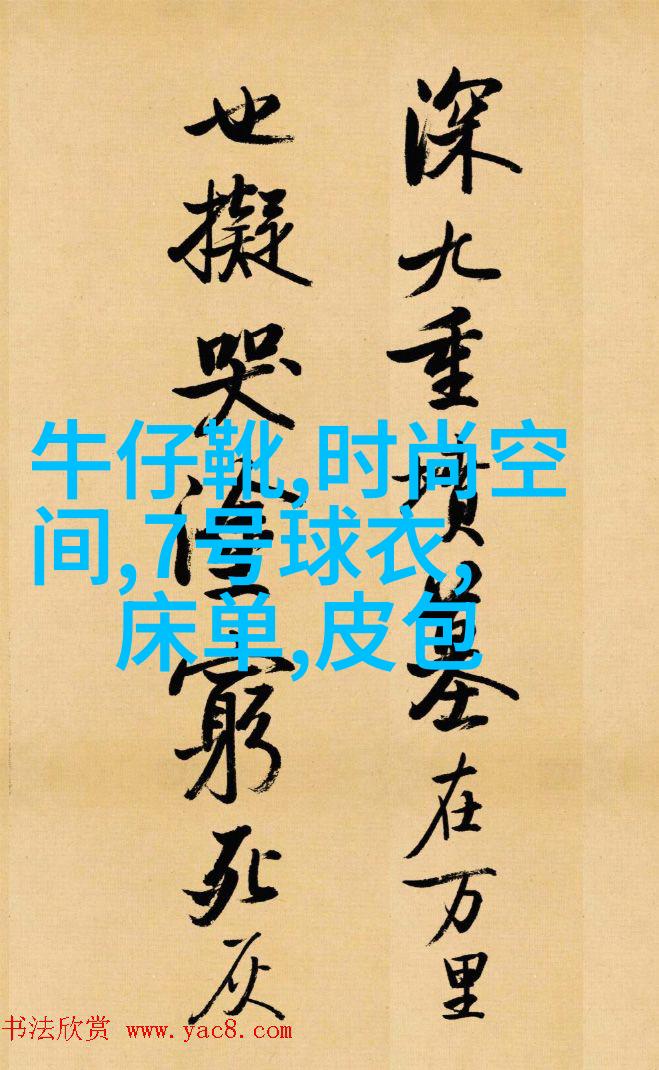 深九重墳墓在万里
也擬哭塗窮死灰
牛仔靴,时尚空
间,7号球衣,
床单,皮包
书法欣赏 www.yac8.com